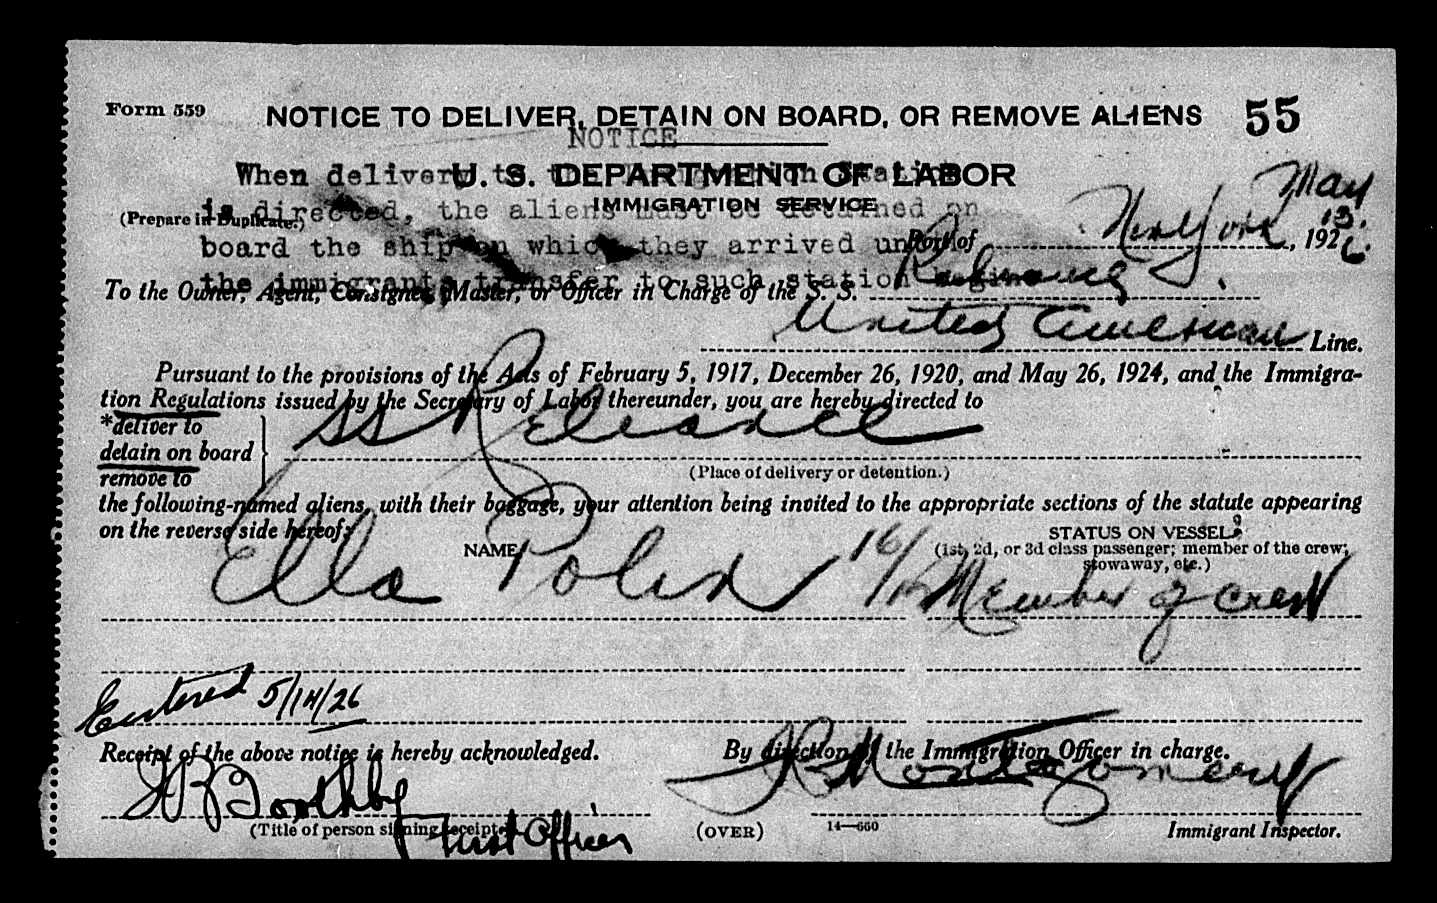 Form 559
NOTICE TO DELIVER, DETAIN ON BOARD, OR REMOVE ALIENS
55
NOTICE
When delivery to the Immigration Station
is directed, the aliens must be detained on
board the ship on which they arrived until
the immigrants transfer to such station begins
U. S. DEPARTMENT OF LABOR
IMMIGRATION SERVICE
(Prepare in Duplicate.)
Port of New York, May 13, 1926.
To the Owner, Agent, Consignee, Master, or Officer in Charge of the S. S. Reliance
United American Line.
Pursuant to the provisions of the Acts of February 5, 1917, December 26, 1920, and May 26, 1924, and the Immigra-
tion Regulations issued by the Secretary of Labor thereunder, you are hereby directed to
*deliver to
detain on board
remove to
SS Reliance
(Place of delivery or detention.)
the following-named aliens, with their baggage, your attention being invited to the appropriate sections of the statute appearing
on the reverse side hereof:
NAME
STATUS ON VESSEL
(1st, 2d, or 3d class passenger; member of the crew;
stowaway, etc.)
Ella 16/12 Member of crew
Entered 5/14/26
Receipt of the above notice is hereby acknowledged.
By direction of the Immigration Officer in charge.
Boothby
First Officer
Montgomery
(Title of person signing receipt)
(OVER)
14—660
Immigrant Inspector.